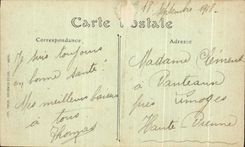 18 Septembre 1918.
Carte Postale
Correspondance
Adresse
Je suis toujours
en bonne santé
Mes meilleurs baisers
à tous
Thomas
Madame Clément
à
près Limoges
Haute Vienne